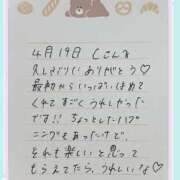 4月19日 Cさんへ
久しぶりだ ありがとう♡
最初からいっぱいほめて
くれてすごくうれしかった
です!! ちょっとしたハプ
ニングもあったけど、
それも楽しいと思って
もらえてたら、うれしいな♡